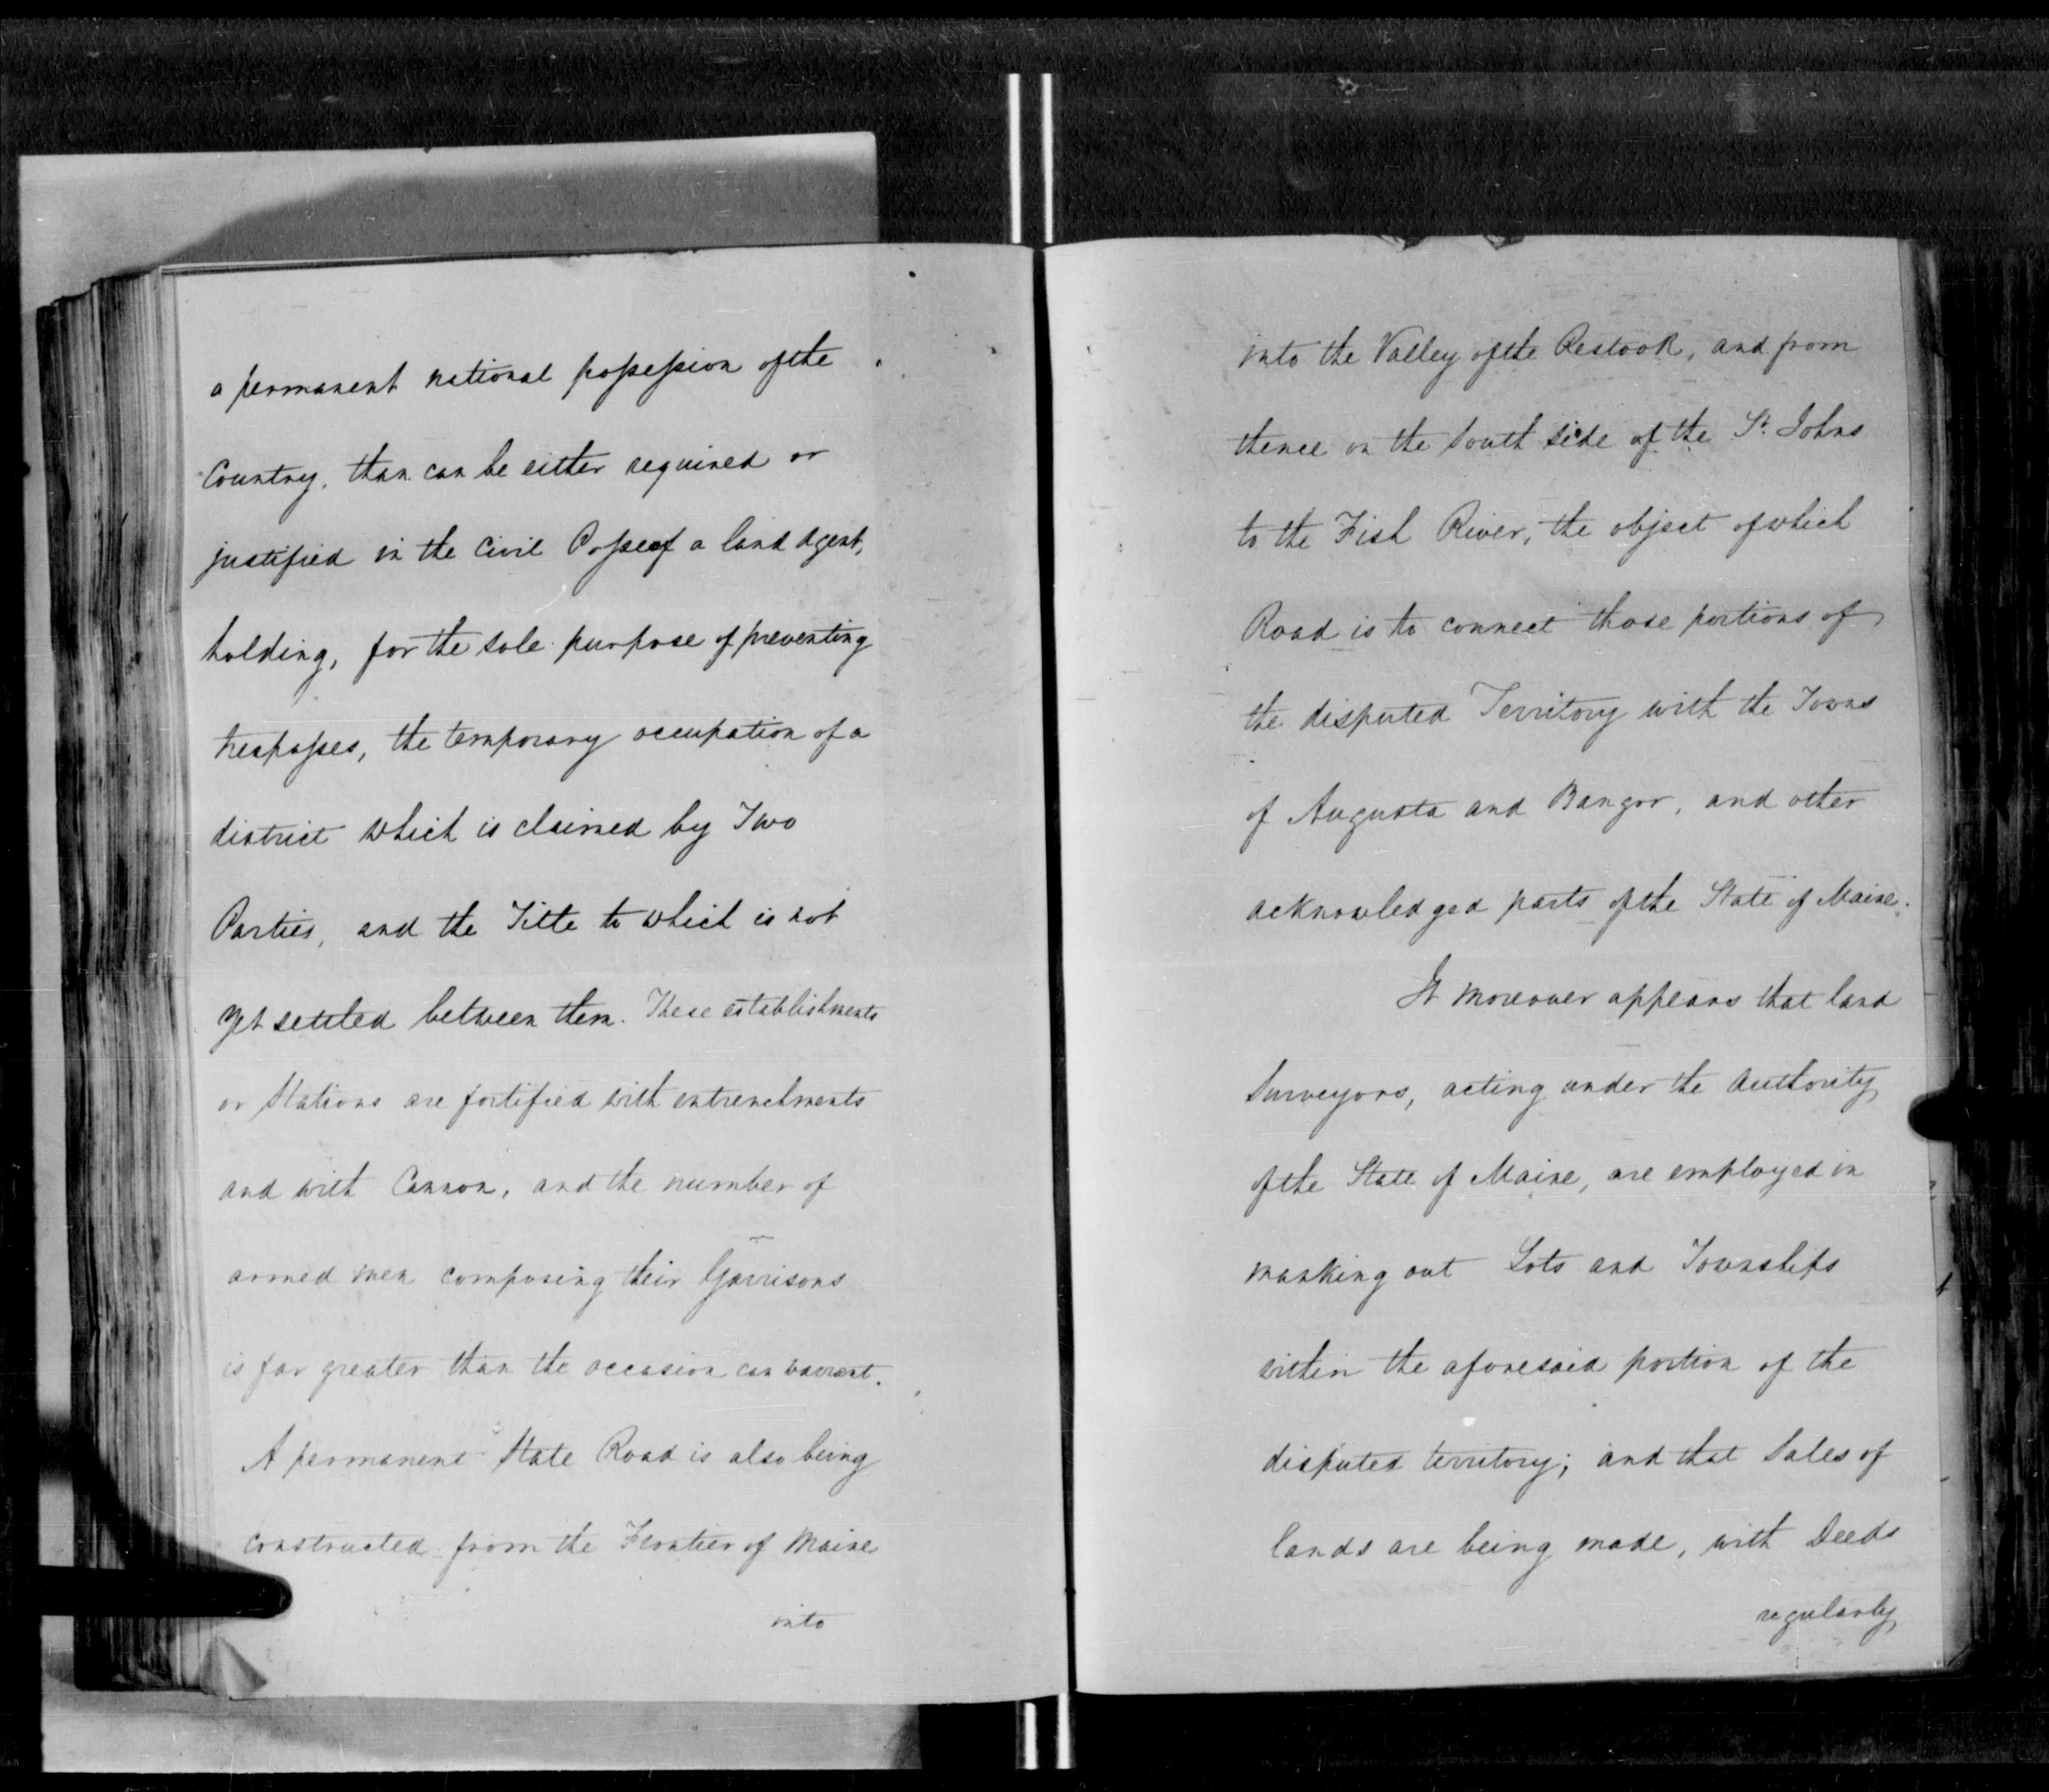 a permanent national possession of the
Country, than can be either required or
justified in the Civil Posse of a land Agent,
holding, for the sole purpose of preventing
trespasses, the temporary occupation of a
district which is claimed by Two
Parties, and the Title to which is not
yet settled between them. These establishments
or Stations are fortified with entrenchments
and with Cannon, and the number of
armed men composing their Garrisons
is far greater than the occasion can warrant.
A permanent State Road is also being
constructed from the Frontier of Maine
into
into the Valley of the Restook, and from
thence on the South side of the St. Johns
to the Fish River, the object of which
Road is to connect those portions of
the disputed Territory with the Towns
of Augusta and Bangor, and other
acknowledged parts of the State of Maine.
It moreover appears that land
Surveyors, acting under the Authority
of the State of Maine, are employed in
marking out Lots and Townships
within the aforesaid portion of the
disputed territory; and that Sales of
lands are being made, with Deeds
regularly